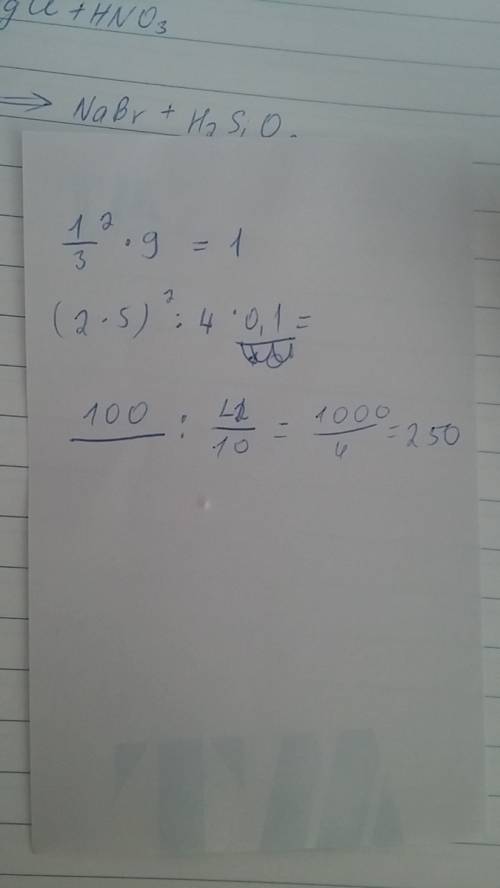 gCl + HNO₃
⇒ NaBr + H₂SiO
1/3² · 9 = 1
(2 · 5)² : 4 · 0,1 =
100 : /10 = 1000/4 = 250